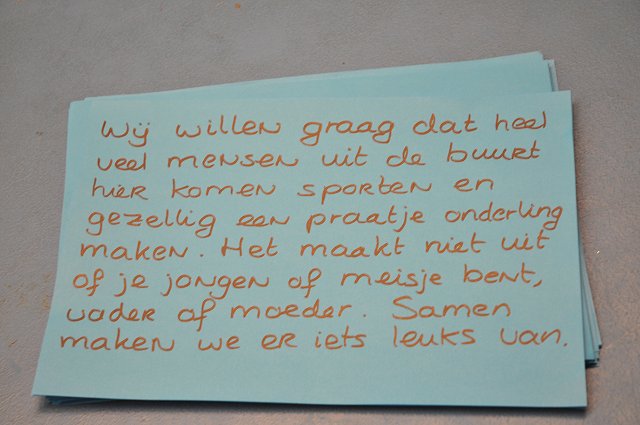 Wij willen graag dat heel
veel mensen uit de buurt
hier komen sporten en
gezellig een praatje onderling
maken. Het maakt niet uit
of je jongen of meisje bent,
vader of moeder. Samen
maken we er iets leuks van.